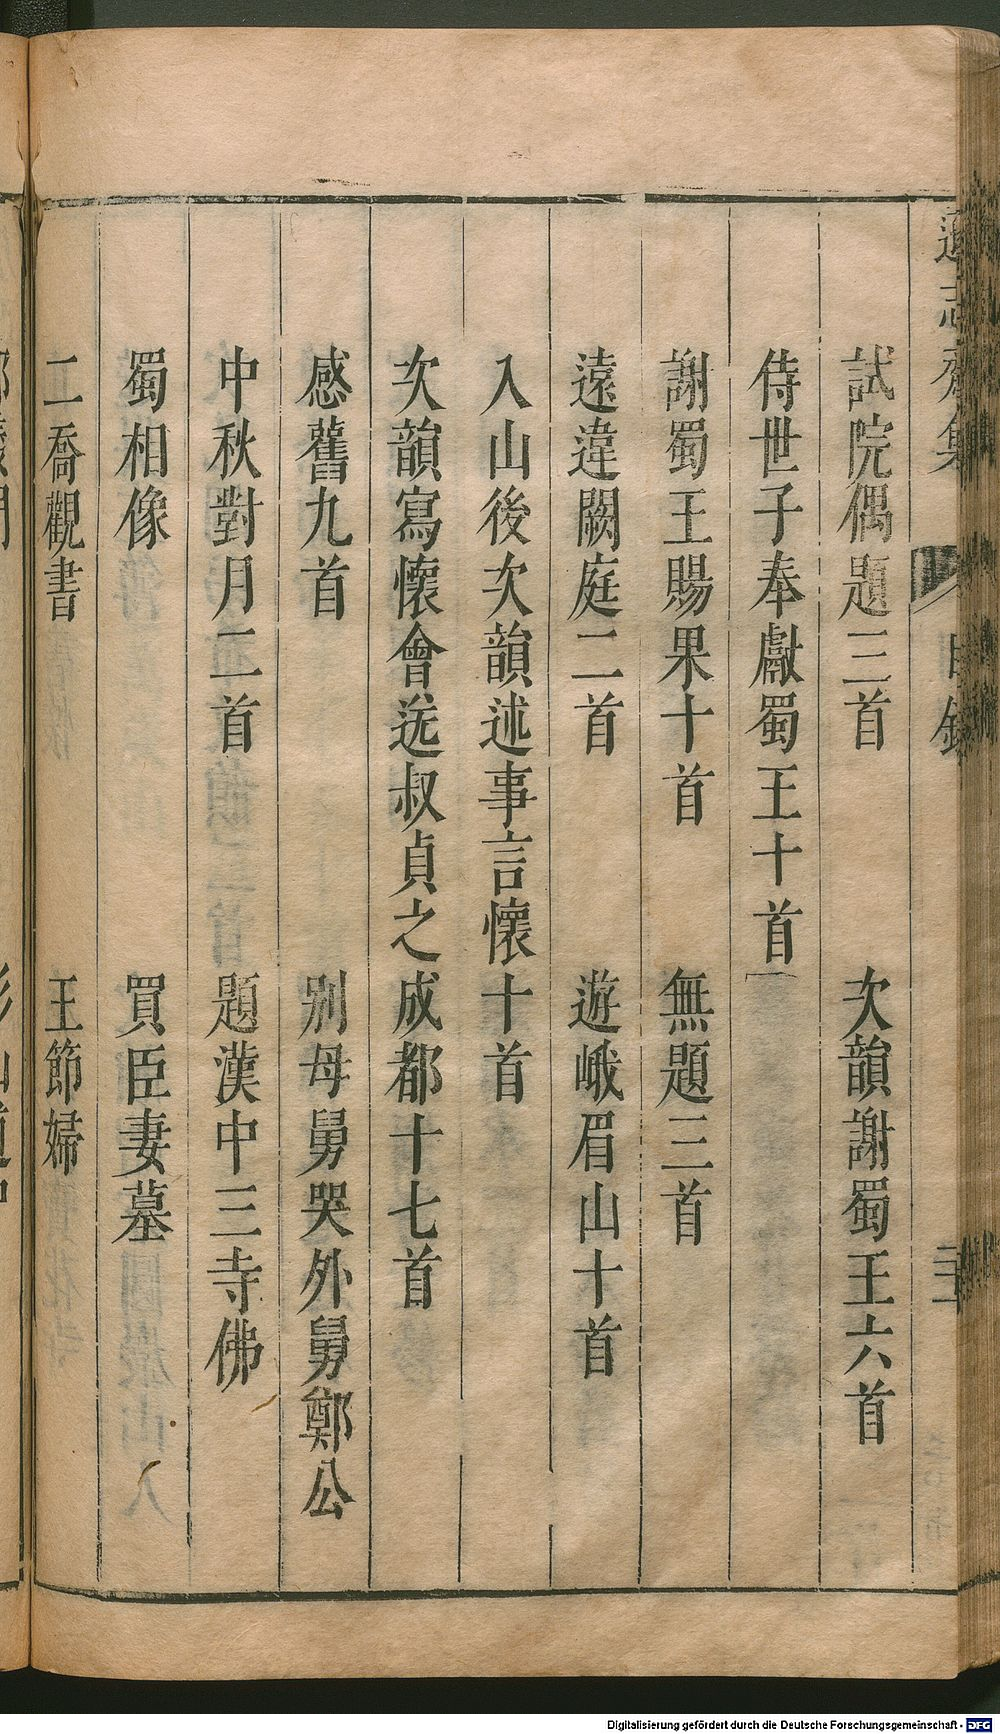 遜志齋集 目錄
試院偶題三首 次韻謝蜀王六首
侍世子奉獻蜀王十首
謝蜀王賜果十首 無題三首
遠違闕庭二首 遊峨眉山十首
入山後次韻述事言懷十首
次韻寫懷會送叔貞之成都十七首
感舊九首 別母舅哭外舅鄭公
中秋對月二首 題漢中三寺佛
蜀相像 買臣妻墓
二喬觀書 王節婦
Digitalisierung gefördert durch die Deutsche Forschungsgemeinschaft - DFG